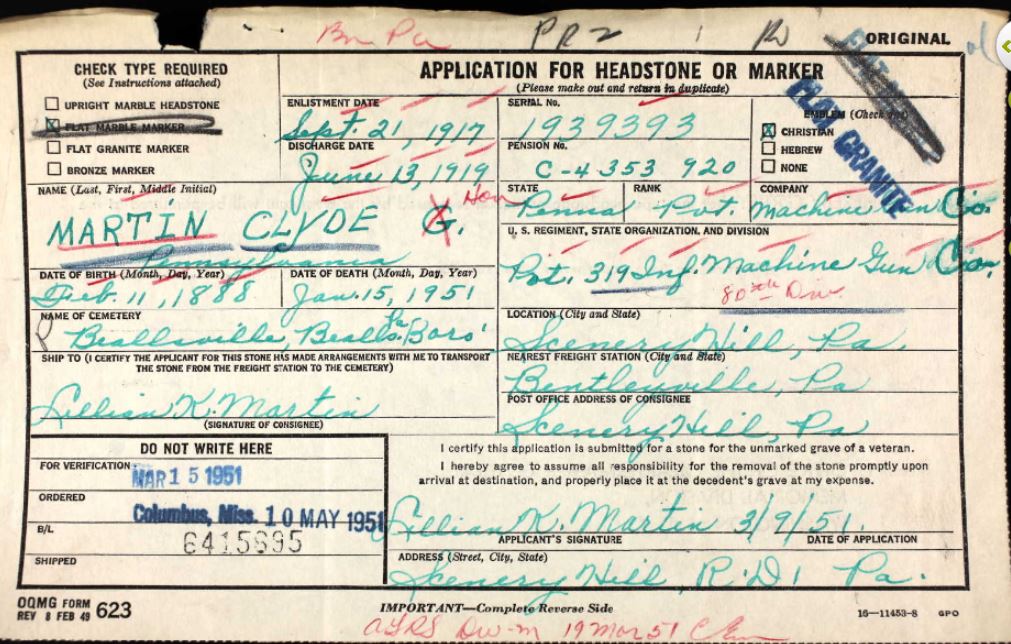 Bn Pa PR2 1
ORIGINAL
CHECK TYPE REQUIRED
(See Instructions attached)
UPRIGHT MARBLE HEADSTONE
FLAT MARBLE MARKER
FLAT GRANITE MARKER
BRONZE MARKER
APPLICATION FOR HEADSTONE OR MARKER
(Please make out and return in duplicate)
ENLISTMENT DATE
Sept. 21, 1917
DISCHARGE DATE
June 13, 1919
Hon
SERIAL No.
1939393
PENSION No.
C-4 353 920
EMBLEM (Check one)
CHRISTIAN
HEBREW
NONE
FLAT GRANITE
NAME (Last, First, Middle Initial)
MARTIN CLYDE G.
Pennsylvania
STATE
Penna
RANK
Pvt.
COMPANY
Machine Gun Co.
U. S. REGIMENT, STATE ORGANIZATION, AND DIVISION
Pvt. 319 Inf. Machine Gun Co.
80th Div.
DATE OF BIRTH (Month, Day, Year)
Feb. 11, 1888
DATE OF DEATH (Month, Day, Year)
Jan. 15, 1951
NAME OF CEMETERY
Beallsville, Bealls. Boro' Pa
LOCATION (City and State)
Scenery Hill, Pa.
SHIP TO (I CERTIFY THE APPLICANT FOR THIS STONE HAS MADE ARRANGEMENTS WITH ME TO TRANSPORT
THE STONE FROM THE FREIGHT STATION TO THE CEMETERY)
Lillian K. Martin
(SIGNATURE OF CONSIGNEE)
NEAREST FREIGHT STATION (City and State)
Bentleyville, Pa
POST OFFICE ADDRESS OF CONSIGNEE
Scenery Hill, Pa
DO NOT WRITE HERE
FOR VERIFICATION
MAR 15 1951
ORDERED
Columbus, Miss. 10 MAY 1951
B/L
6415695
SHIPPED
I certify this application is submitted for a stone for the unmarked grave of a veteran.
I hereby agree to assume all responsibility for the removal of the stone promptly upon
arrival at destination, and properly place it at the decedent's grave at my expense.
Lillian K. Martin 3/9/51.
APPLICANT'S SIGNATURE
DATE OF APPLICATION
ADDRESS (Street, City, State)
Scenery Hill R.D1 Pa.
OQMG FORM
REV 8 FEB 49 623
IMPORTANT—Complete Reverse Side
16—11453-8 GPO
19 Mar 51